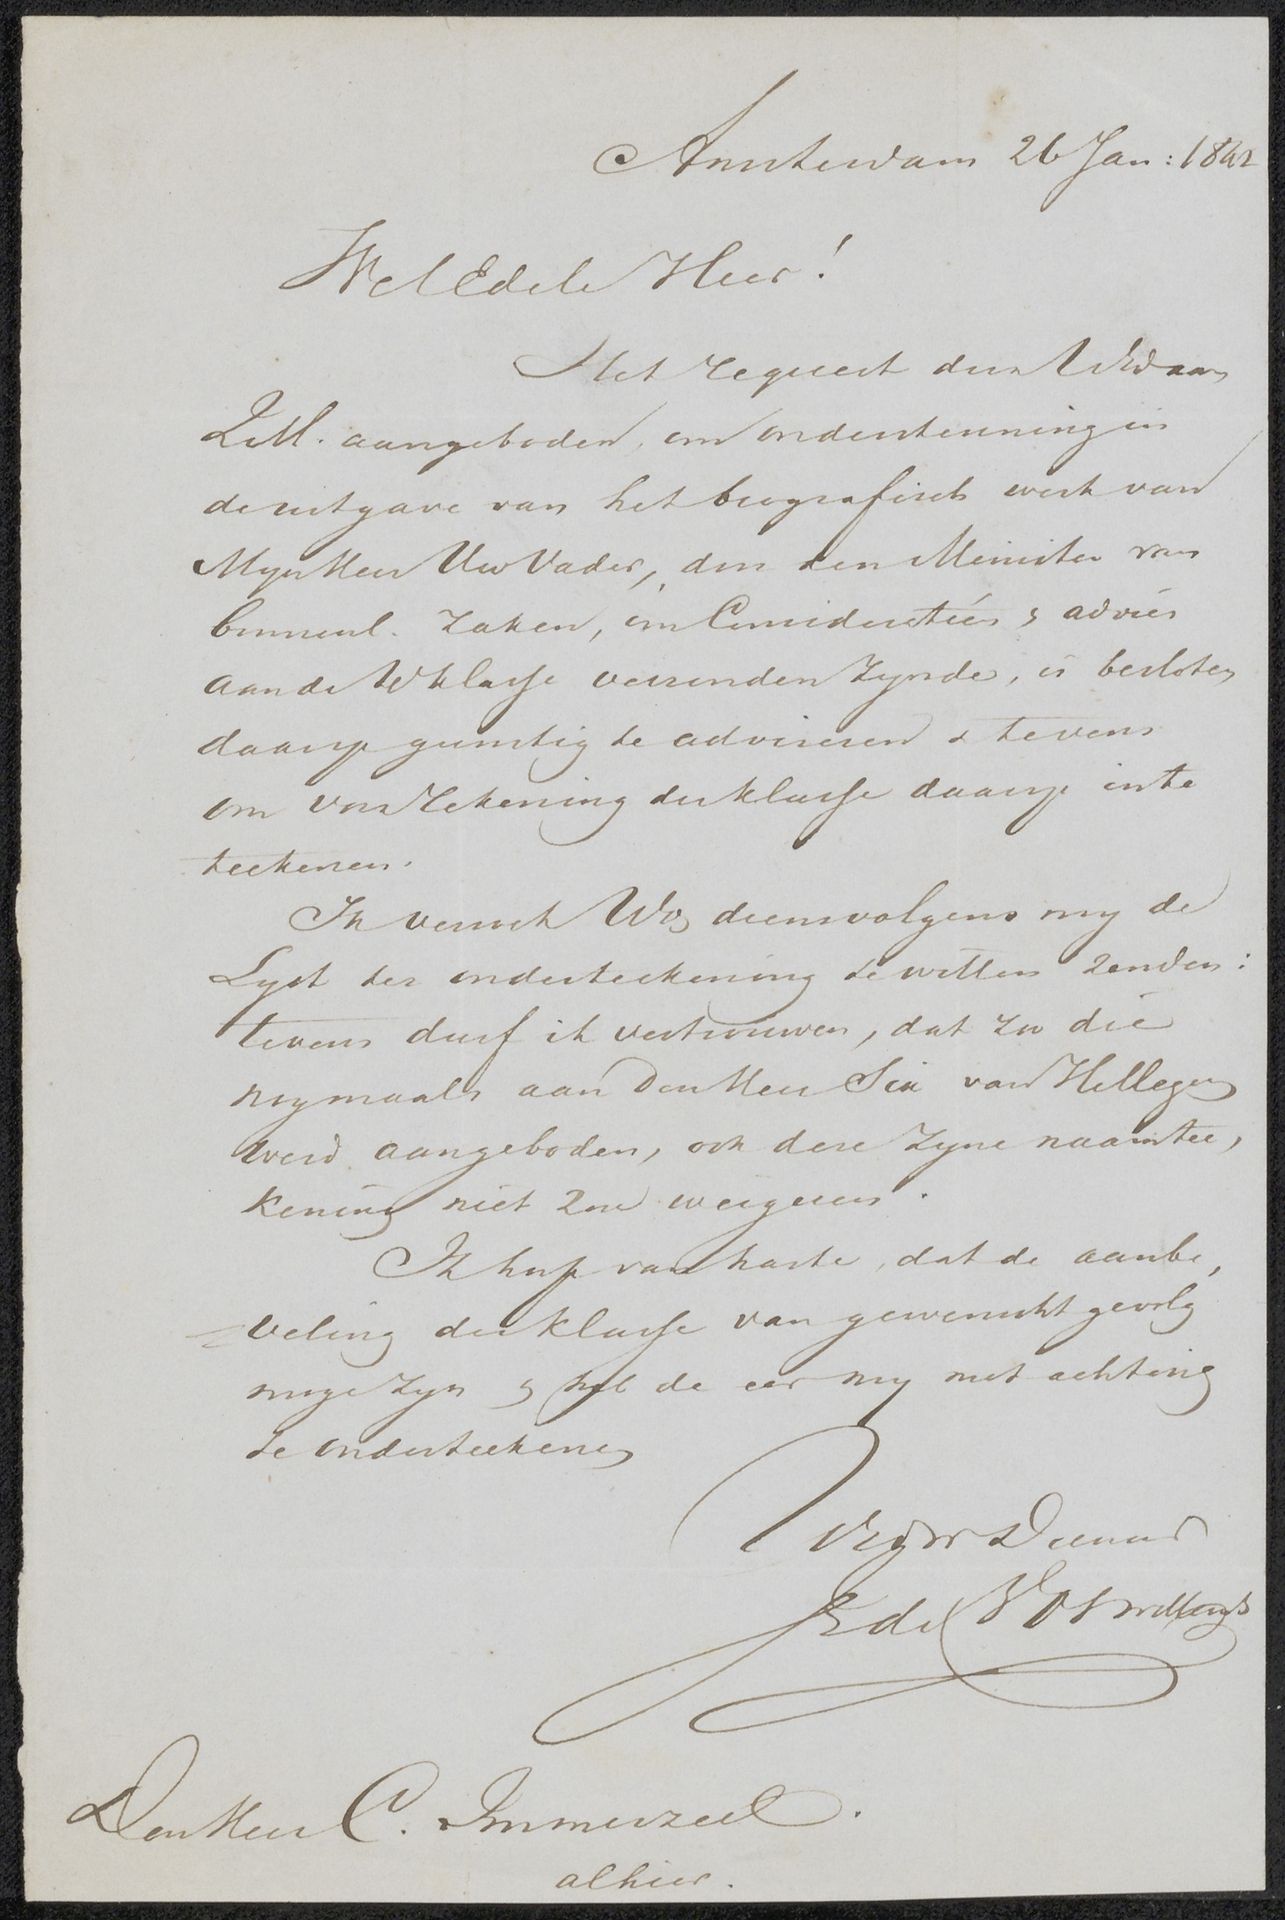 Amsterdam 26 Jan: 1842
WelEdele Heer!
Het request door UEd aan
Z.M. aangeboden, om ondersteuning in
de uitgave van het biografisch werk van
Mijn Heer Uw Vader, door den Minister van
binnenl. Zaken, om Consideratiën & advies
aan de klasse verzonden zynde, is besloten
daarop gunstig te adviseren & tevens
om voor rekening der klasse daarop in te
teekenen.
Ik verzoek diensvolgens my de
Lyst ter onderteekening te willen zenden:
tevens durf ik vertrouwen, dat zoo die
nogmaals aan Den Heer Six van Hillegom
werd aangeboden, ook deze zyne naamtee,
kening niet zou weigeren.
Ik hoop van harte, dat de aanbe,
veling der klasse van gewenscht gevolg
moge zyn & heb de eer my met achting
te onderteekenen
Dienaar
de Vos
Den Heer C. Immerzeel.
alhier.